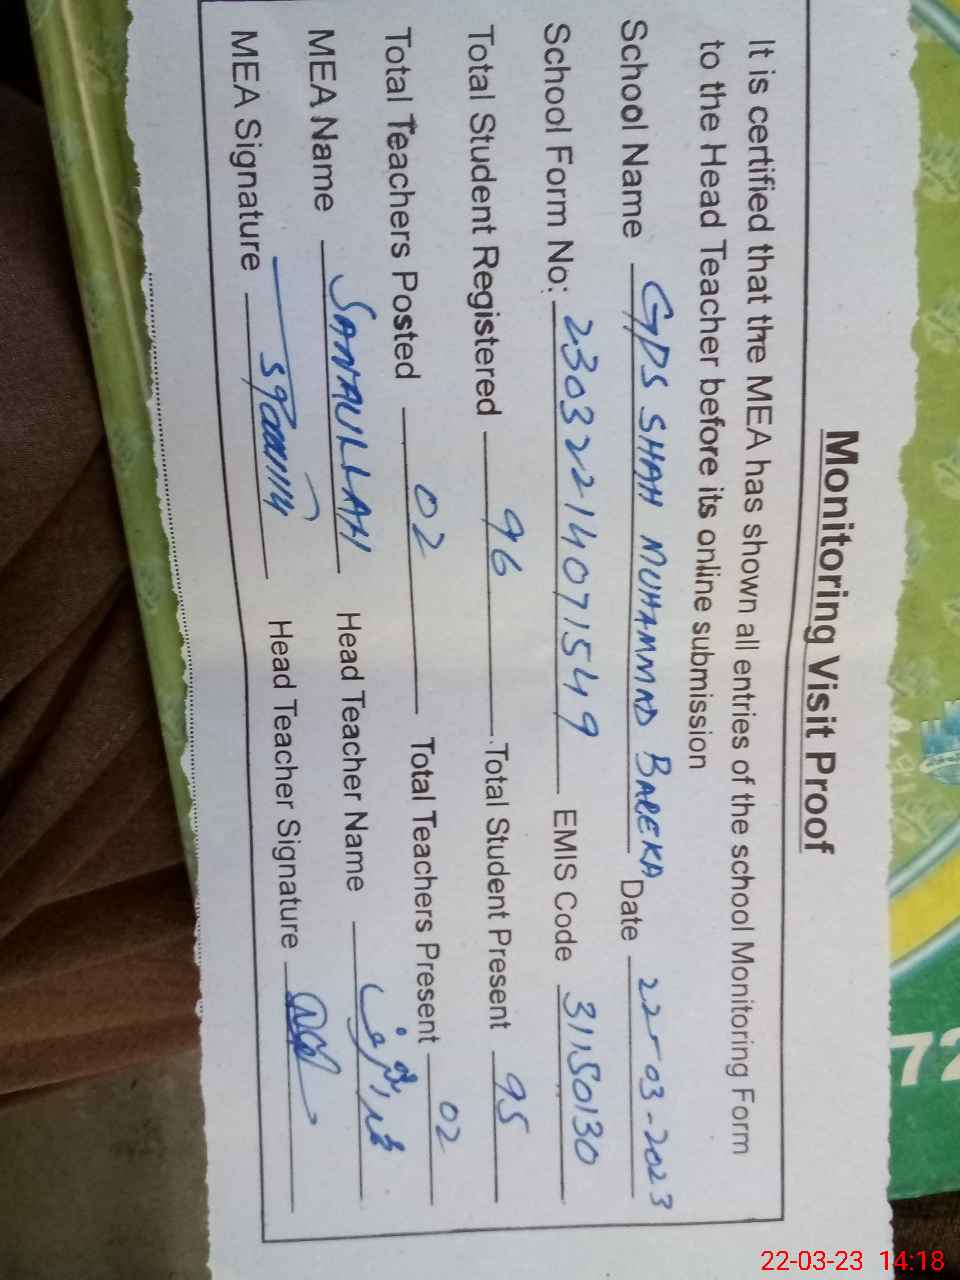 Monitoring Visit Proof
It is certified that the MEA has shown all entries of the school Monitoring Form
to the Head Teacher before its online submission
School Name GPS SHAH MUHAMMAD BAREKA Date 22-03-2023
School Form No: 230322140715449 EMIS Code 31150130
Total Student Registered 96 Total Student Present 95
Total Teachers Posted 02 Total Teachers Present 02
MEA Name SANAULLAH Head Teacher Name
MEA Signature Head Teacher Signature
72
22-03-23 14:18